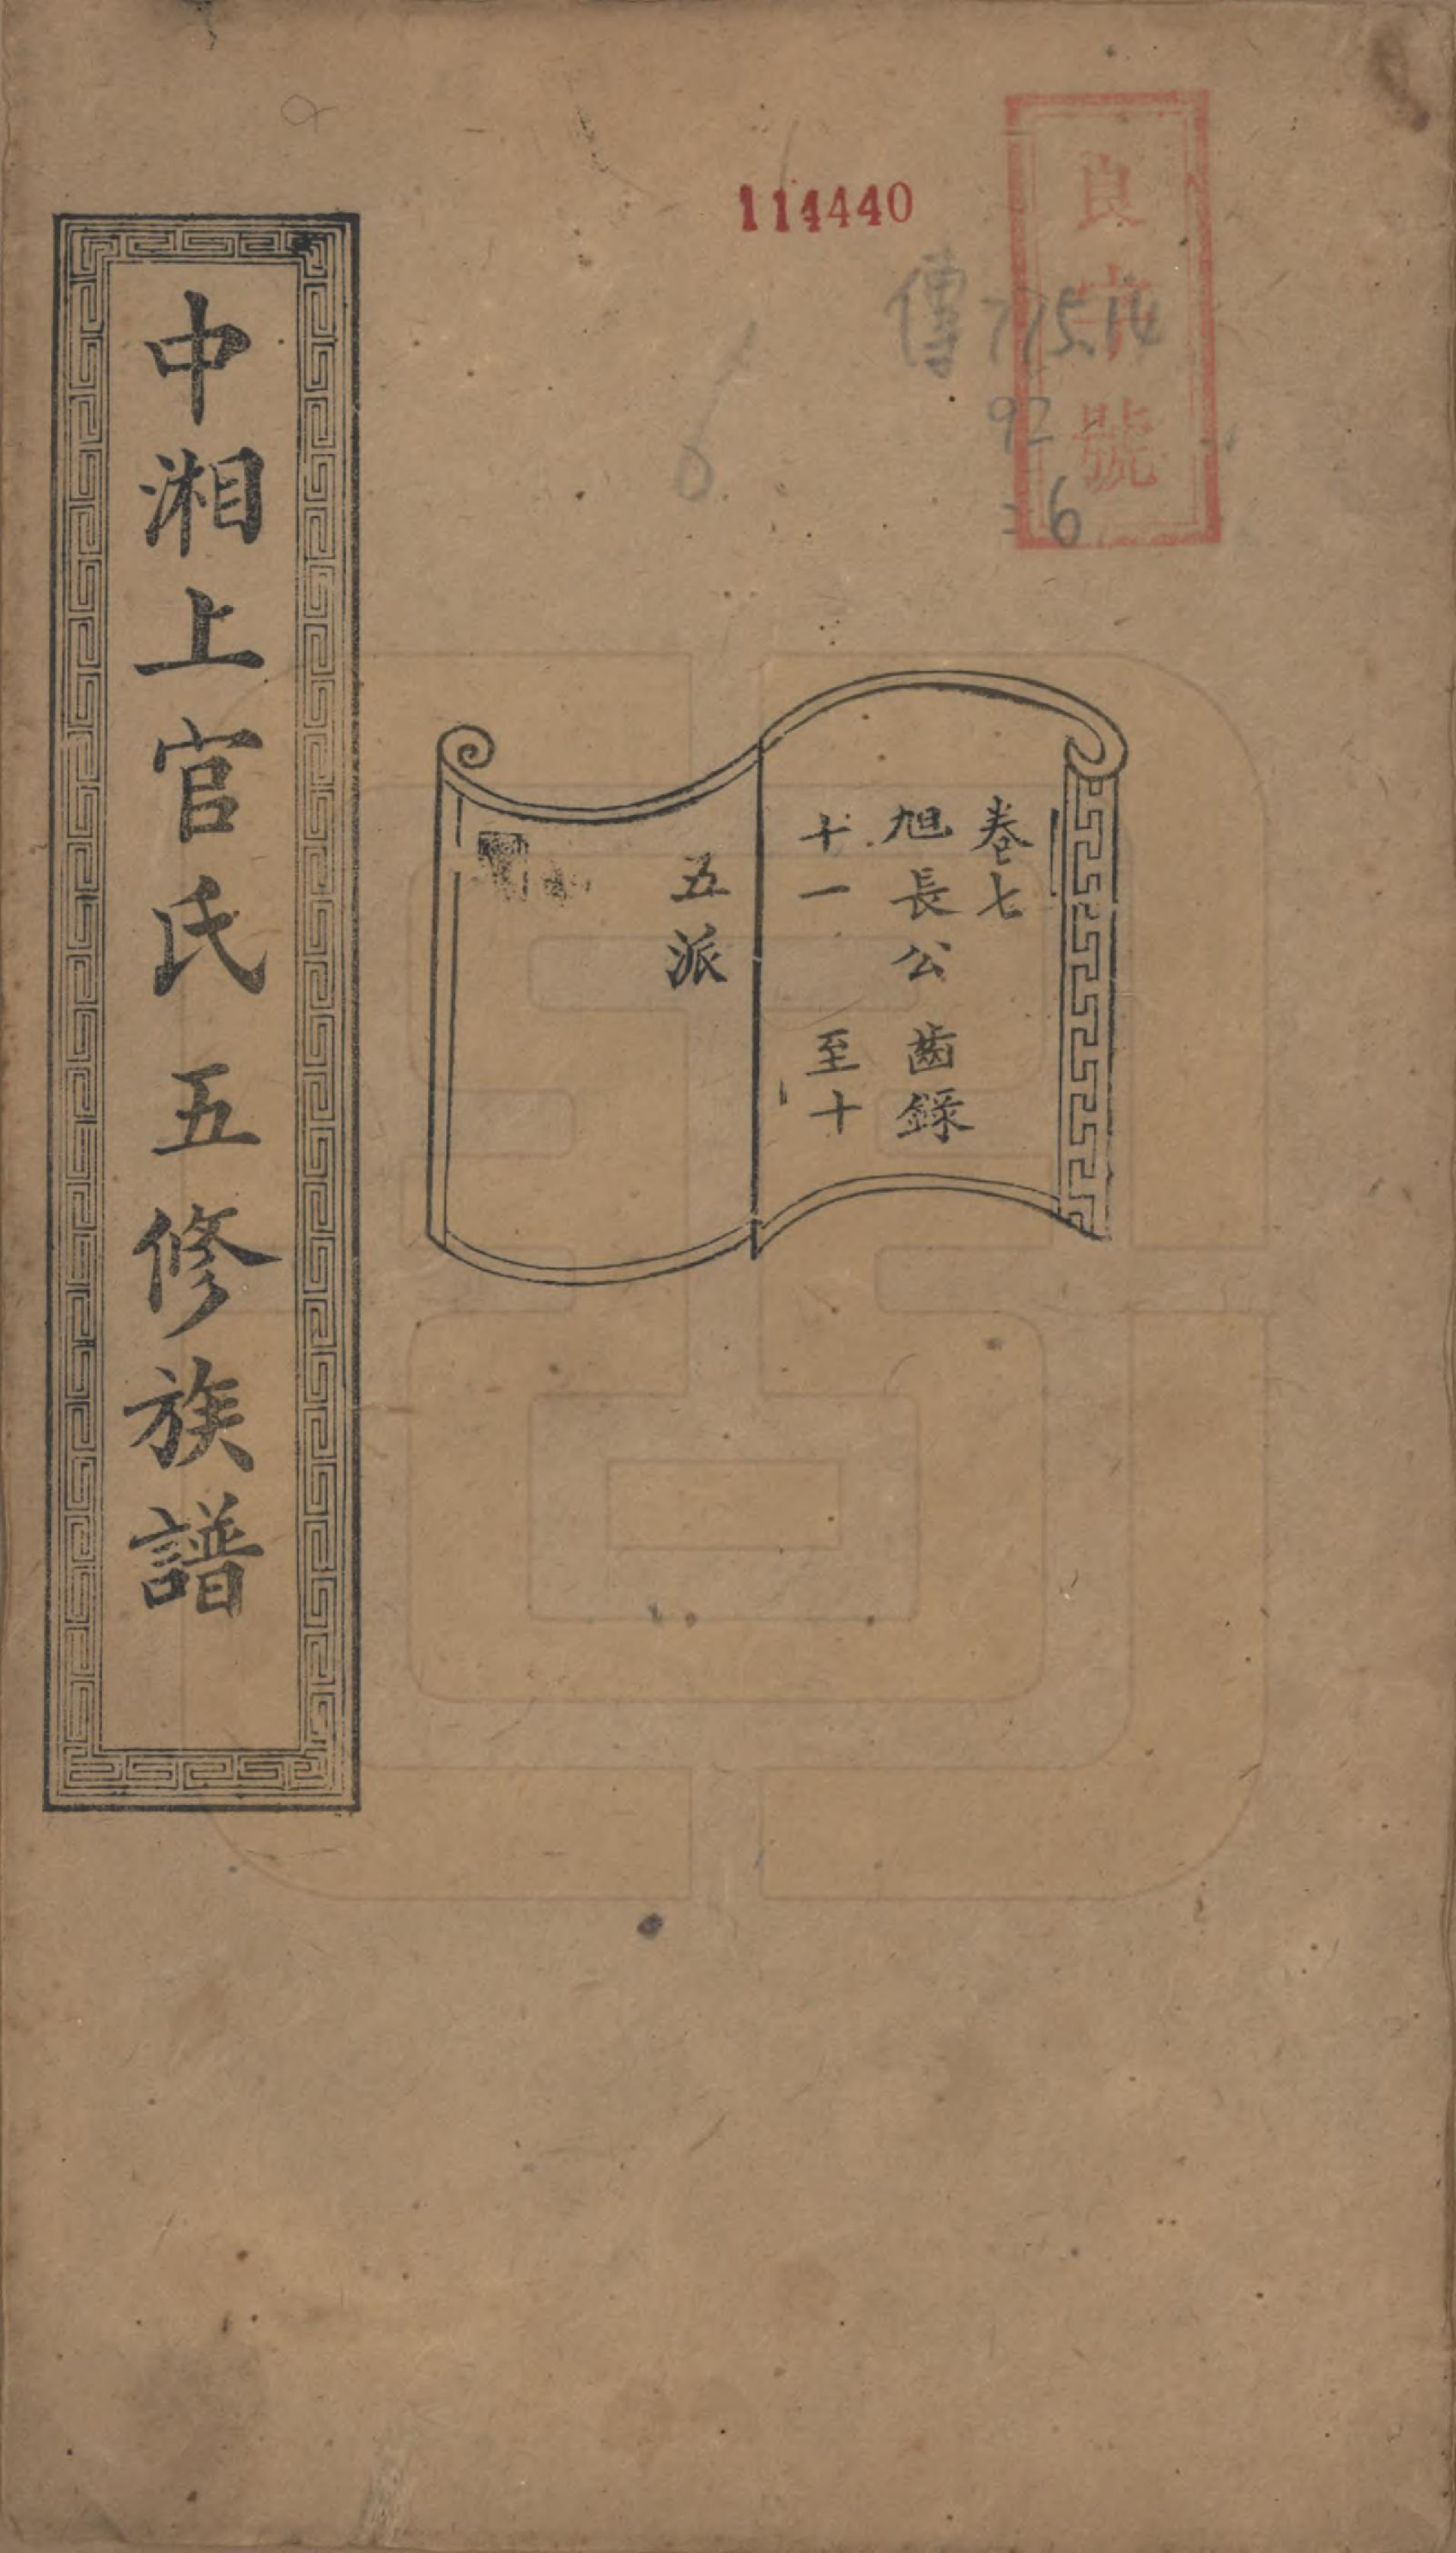 中湘上官氏五修族譜
卷七
旭長公齒錄
十一至十
五派
114440
傳775.14
92
:6
良字號